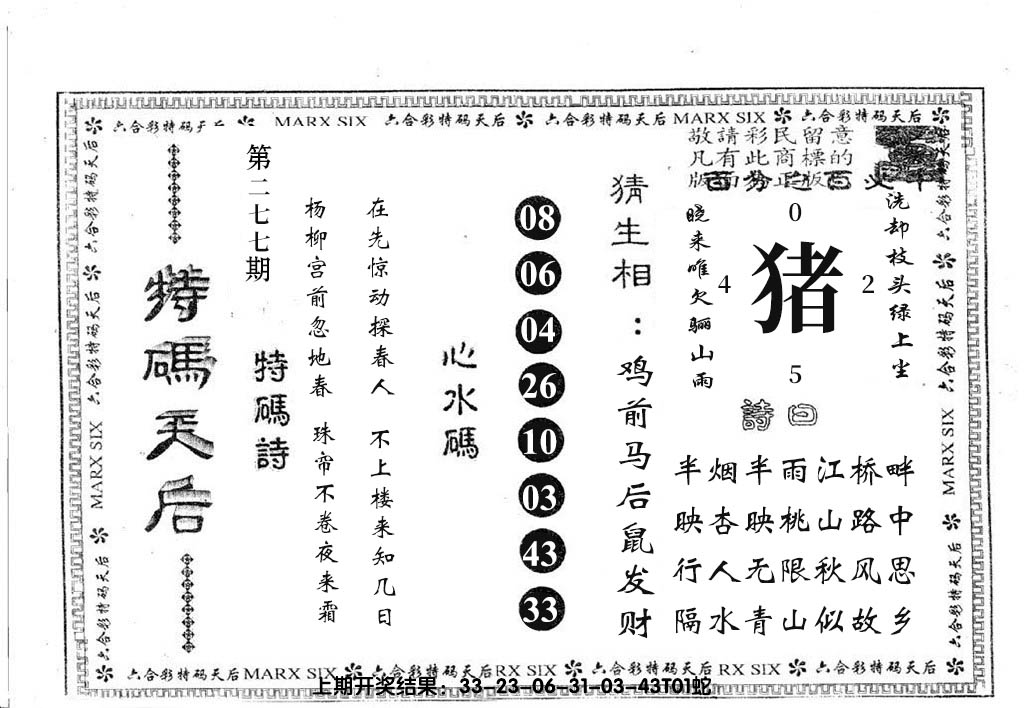 六合彩特码天后 MARX SIX 六合彩特码天后 六合彩特码天后 MARX SIX 六合彩特码天后
六合彩特码天后 六合彩特码天后 MARX SIX 六合彩特码天后
特碼天后
第二七七期
特碼詩
杨柳宫前忽地春 珠帘不卷夜来霜
在先惊动探春人 不上楼来知几日
心水碼
08
06
04
26
10
03
43
33
猜生相：鸡前马后鼠发财
敬請彩民留意
凡有此商標的
版面为正版
晓来唯欠骊山雨
0
4
猪
2
5
洗却枝头绿上尘
詩曰
半烟半雨江桥畔
映杏映桃山路中
行人无限秋风思
隔水青山似故乡
六合彩特码天后 六合彩特码天后 MARX SIX 六合彩特码天后
六合彩特码天后 MARX SIX 六合彩特码天后 RX SIX 六合彩特码天后 RX SIX 六合彩特码天后
上期开奖结果：33-23-06-31-03-43T01蛇